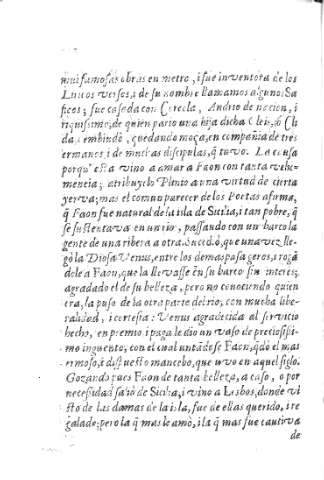 mui famosas obras en metro, i fue inventora de los
Liricos versos, i de su nombre llamamos algunos Sa
ficos; fue casada con Cercola, Andrio de nacion, i
riquissimo, de quien pario una hija dicha Cleis, ò Cli
da, i embiudò, quedando moça, en compañia de tres
ermanos, i de muchas discipulas, q̃ tuvo. La causa
porqu' esta vino a amar a Faon con tanta vehe-
mencia; atribuyelo Plinio a una virtud de cierta
yerva; mas el comun parecer de los Poetas afirma,
q̃ Faon fue natural de la isla de Sicilia, i tan pobre, q̃
se sustentava en un rio, passando con un barco la
gente de una ribera a otra. Sucedió, que una vez lle-
gò la Diosa Venus, entre los demas pasageros, i rogã
dole a Faon, que la llevasse en su barco sin interes;
agradado el de su belleza, pero no conociendo quien
era, la puso de la otra parte del rio, con mucha libe-
ralidad, i cortesia: Venus agradecida al servicio
hecho, en premio i paga le dio un vaso de preciosissi-
mo inguento; con el cual untãdose Faon, q̃dò el mas
ermoso, i dispuesto mancebo, que uvo en aquel siglo.
Gozando pues Faon de tanta belleza, a caso, o por
necesidad salio de Sicilia, i vino a Lesbos, donde vi
sto de las damas de la isla, fue de ellas querido, i re
galado; pero la q̃ mas le amò, i la q̃ mas fue cautiva
de